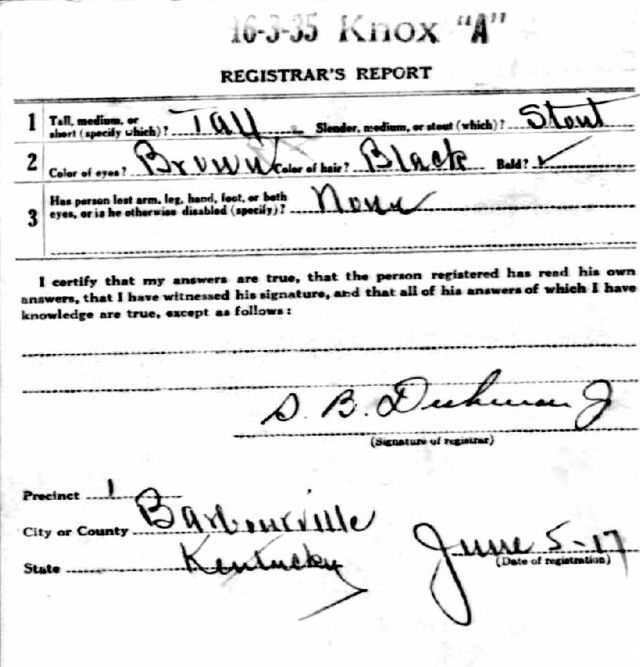 16-3-35 Knox "A"
REGISTRAR'S REPORT
1 Tall, medium, or short (specify which)? Tall Slender, medium, or stout (which)? Stout
2 Color of eyes? Brown Color of hair? Black Bald? ✓
3 Has person lost arm, leg, hand, foot, or both
eyes, or is he otherwise disabled (specify)? None
I certify that my answers are true, that the person registered has read his own
answers, that I have witnessed his signature, and that all of his answers of which I have
knowledge are true, except as follows:
S. B. Dishman J
(Signature of registrar)
Precinct 1
City or County Barbourville
State Kentucky
June 5-17
(Date of registration)